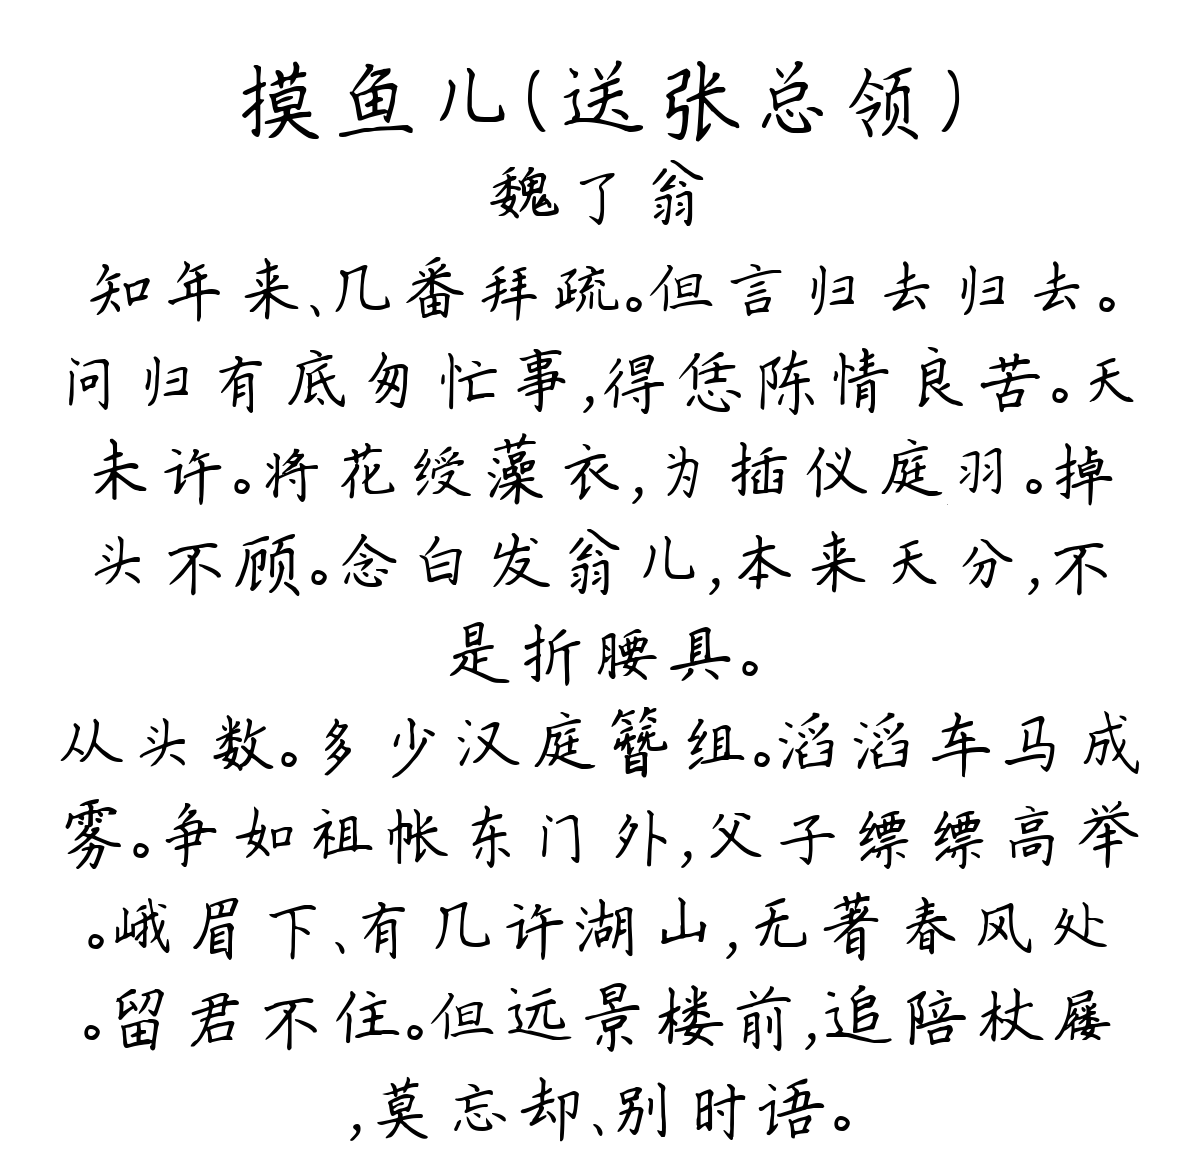 摸鱼儿(送张总领)
魏了翁
知年来、几番拜疏。但言归去归去。
问归有底匆忙事,得恁陈情良苦。天
未许。将花绶藻衣,为插仪庭羽。掉
头不顾。念白发翁儿,本来天分,不
是折腰具。
从头数。多少汉庭簪组。滔滔车马成
雾。争如祖帐东门外,父子缥缥高举
。峨眉下、有几许湖山,无著春风处
。留君不住。但远景楼前,追陪杖屦
,莫忘却、别时语。